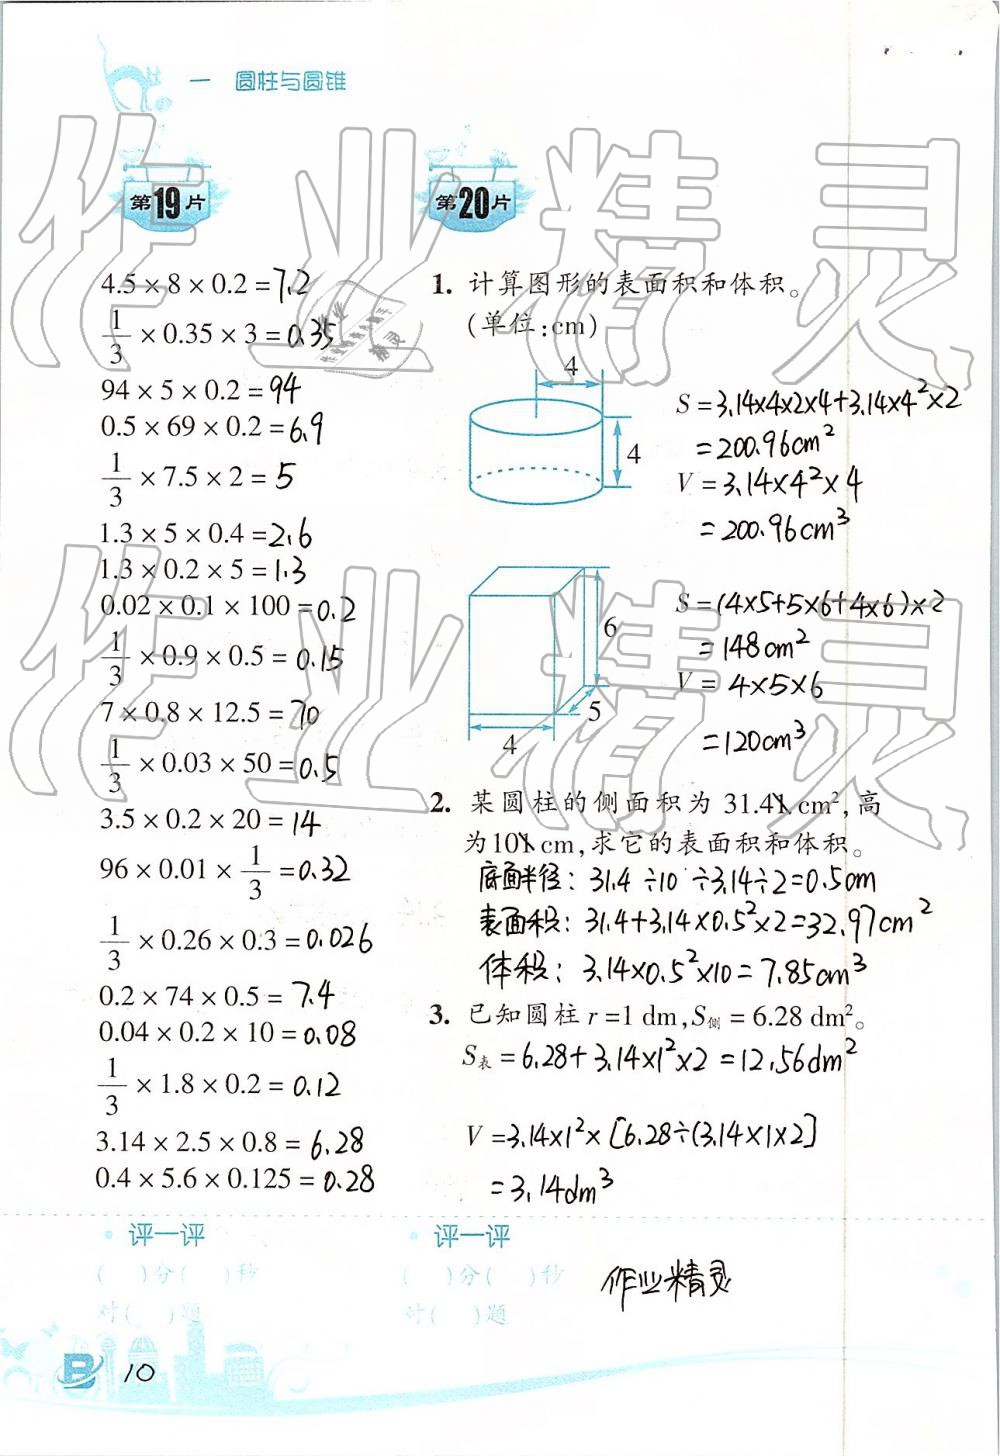 一 圆柱与圆锥
第19片
4.5×8×0.2=7.2
1/3×0.35×3=0.35
94×5×0.2=94
0.5×69×0.2=6.9
1/3×7.5×2=5
1.3×5×0.4=2.6
1.3×0.2×5=1.3
0.02×0.1×100=0.2
1/3×0.9×0.5=0.15
7×0.8×12.5=70
1/3×0.03×50=0.5
3.5×0.2×20=14
96×0.01×1/3=0.32
1/3×0.26×0.3=0.026
0.2×74×0.5=7.4
0.04×0.2×10=0.08
1/3×1.8×0.2=0.12
3.14×2.5×0.8=6.28
0.4×5.6×0.125=0.28
评一评
( )分( )秒
对( )题
第20片
1. 计算图形的表面积和体积。
(单位:cm)
4
4
S=3.14×4×2×4+3.14×4²×2
=200.96cm²
V=3.14×4²×4
=200.96cm³
6
5
4
S=(4×5+5×6+4×6)×2
=148cm²
V=4×5×6
=120cm³
2. 某圆柱的侧面积为 31.4 cm²,高
为10 cm,求它的表面积和体积。
底面半径:31.4÷10÷3.14÷2=0.5cm
表面积:31.4+3.14×0.5²×2=32.97cm²
体积:3.14×0.5²×10=7.85cm³
3. 已知圆柱 r=1 dm,S侧=6.28 dm²。
S表=6.28+3.14×1²×2=12.56dm²
V=3.14×1²×[6.28÷(3.14×1×2]
=3.14dm³
评一评
( )分( )秒
对( )题
作业精灵
B 10
作业精灵
作业精灵